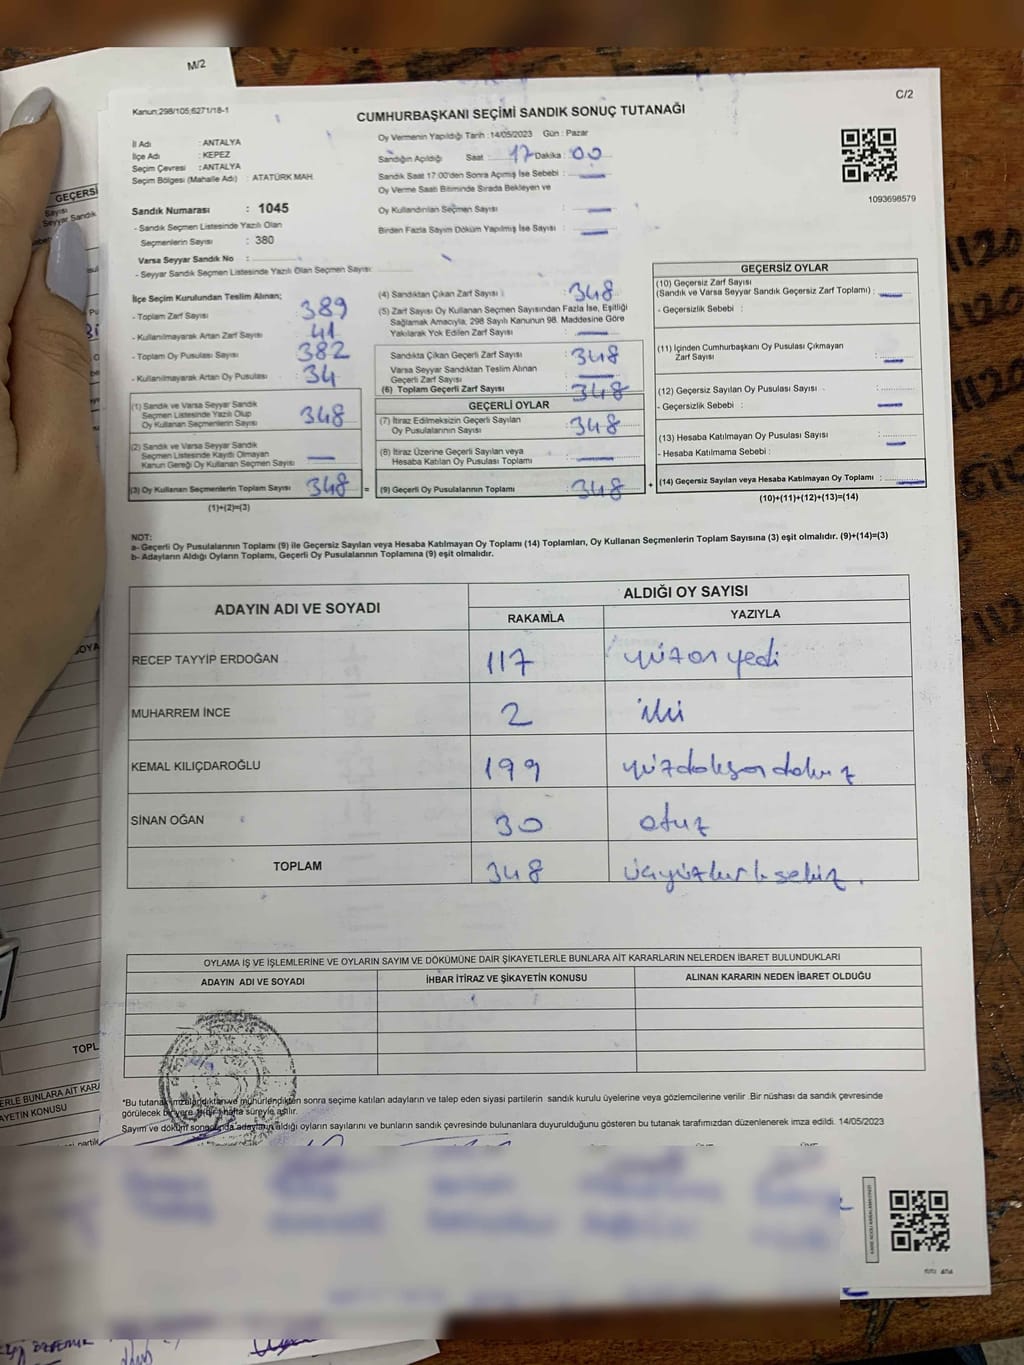 M/2
C/2
Kanun:298/105;6271/18-1
CUMHURBAŞKANI SEÇİMİ SANDIK SONUÇ TUTANAĞI
İl Adı : ANTALYA
İlçe Adı : KEPEZ
Seçim Çevresi : ANTALYA
Seçim Bölgesi (Mahalle Adı) : ATATÜRK MAH.
Sandık Numarası : 1045
- Sandık Seçmen Listesinde Yazılı Olan
Seçmenlerin Sayısı : 380
Varsa Seyyar Sandık No :
- Seyyar Sandık Seçmen Listesinde Yazılı Olan Seçmen Sayısı:
Oy Vermenin Yapıldığı Tarih : 14/05/2023 Gün : Pazar
Sandığın Açıldığı Saat 17 Dakika : 00
Sandık Saat 17:00'den Sonra Açımış İse Sebebi : —
Oy Verme Saati Bitiminde Sırada Bekleyen ve
Oy Kullandırılan Seçmen Sayısı : —
Birden Fazla Sayım Döküm Yapılmış İse Sayısı : —
1093698579
İlçe Seçim Kurulundan Teslim Alınan;
- Toplam Zarf Sayısı : 389
- Kullanılmayarak Artan Zarf Sayısı : 41
- Toplam Oy Pusulası Sayısı : 382
- Kullanılmayarak Artan Oy Pusulası : 34
(1) Sandık ve Varsa Seyyar Sandık
Seçmen Listesinde Yazılı Olup
Oy Kullanan Seçmenlerin Sayısı : 348
(2) Sandık ve Varsa Seyyar Sandık
Seçmen Listesinde Kayıtlı Olmayan
Kanun Gereği Oy Kullanan Seçmen Sayısı : —
(3) Oy Kullanan Seçmenlerin Toplam Sayısı : 348 =
(1)+(2)=(3)
(4) Sandıktan Çıkan Zarf Sayısı : 348
(5) Zarf Sayısı Oy Kullanan Seçmen Sayısından Fazla İse, Eşitliği
Sağlamak Amacıyla, 298 Sayılı Kanunun 98. Maddesine Göre
Yakılarak Yok Edilen Zarf Sayısı : —
Sandıkta Çıkan Geçerli Zarf Sayısı : 348
Varsa Seyyar Sandıktan Teslim Alınan
Geçerli Zarf Sayısı : —
(6) Toplam Geçerli Zarf Sayısı : 348
GEÇERLİ OYLAR
(7) İtiraz Edilmeksizin Geçerli Sayılan
Oy Pusulalarının Sayısı : 348
(8) İtiraz Üzerine Geçerli Sayılan veya
Hesaba Katılan Oy Pusulası Toplamı : —
(9) Geçerli Oy Pusulalarının Toplamı : 348 +
GEÇERSİZ OYLAR
(10) Geçersiz Zarf Sayısı
(Sandık ve Varsa Seyyar Sandık Geçersiz Zarf Toplamı) : —
- Geçersizlik Sebebi :
(11) İçinden Cumhurbaşkanı Oy Pusulası Çıkmayan
Zarf Sayısı : —
(12) Geçersiz Sayılan Oy Pusulası Sayısı :
- Geçersizlik Sebebi : —
(13) Hesaba Katılmayan Oy Pusulası Sayısı : —
- Hesaba Katılmama Sebebi :
(14) Geçersiz Sayılan veya Hesaba Katılmayan Oy Toplamı : —
(10)+(11)+(12)+(13)=(14)
NOT:
a- Geçerli Oy Pusulalarının Toplamı (9) ile Geçersiz Sayılan veya Hesaba Katılmayan Oy Toplamı (14) Toplamları, Oy Kullanan Seçmenlerin Toplam Sayısına (3) eşit olmalıdır. (9)+(14)=(3)
b- Adayların Aldığı Oyların Toplamı, Geçerli Oy Pusulalarının Toplamına (9) eşit olmalıdır.
ADAYIN ADI VE SOYADI ALDIĞI OY SAYISI
RAKAMLA YAZIYLA
RECEP TAYYİP ERDOĞAN 117 yüzonyedi
MUHARREM İNCE 2 iki
KEMAL KILIÇDAROĞLU 199 yüzdoksandokuz
SİNAN OĞAN 30 otuz
TOPLAM 348 üçyüzkırksekiz.
OYLAMA İŞ VE İŞLEMLERİNE VE OYLARIN SAYIM VE DÖKÜMÜNE DAİR ŞİKAYETLERLE BUNLARA AİT KARARLARIN NELERDEN İBARET BULUNDUKLARI
ADAYIN ADI VE SOYADI İHBAR İTİRAZ VE ŞİKAYETİN KONUSU ALINAN KARARIN NEDEN İBARET OLDUĞU
*Bu tutanak imzalandıktan ve mühürlendikten sonra seçime katılan adayların ve talep eden siyasi partilerin sandık kurulu üyelerine veya gözlemcilerine verilir .Bir nüshası da sandık çevresinde
görülecek bir yere bir hafta süreyle asılır.
Sayım ve döküm sonucunda adayların aldığı oyların sayılarını ve bunların sandık çevresinde bulunanlara duyurulduğunu gösteren bu tutanak tarafımızdan düzenlenerek imza edildi. 14/05/2023